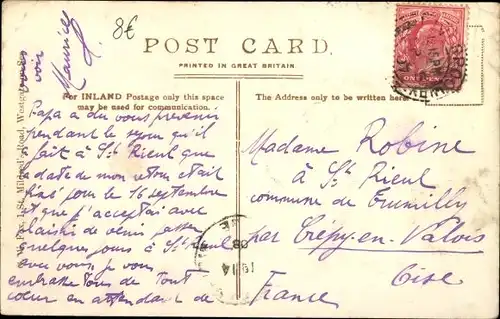 8€
POST CARD.
PRINTED IN GREAT BRITAIN.
For INLAND Postage only this space
may be used for communication.
The Address only to be written here.
Papa a du vous prévenir
pendant le séjour qu'il
fait à St Rieul que
la date de mon retour était
pour le 16 septembre
et que j'acceptai avec
plaisir de venir passer
quelques jours à St Rieul
avec vous, je vous
embrasse tous de tout
cœur en attendant de
vous
voir
Maurice
Madame Robine
à St Rieul
commune de Trumilly
par Crépy-en-Valois
Oise
France
St. Mildred's Road, Westgate